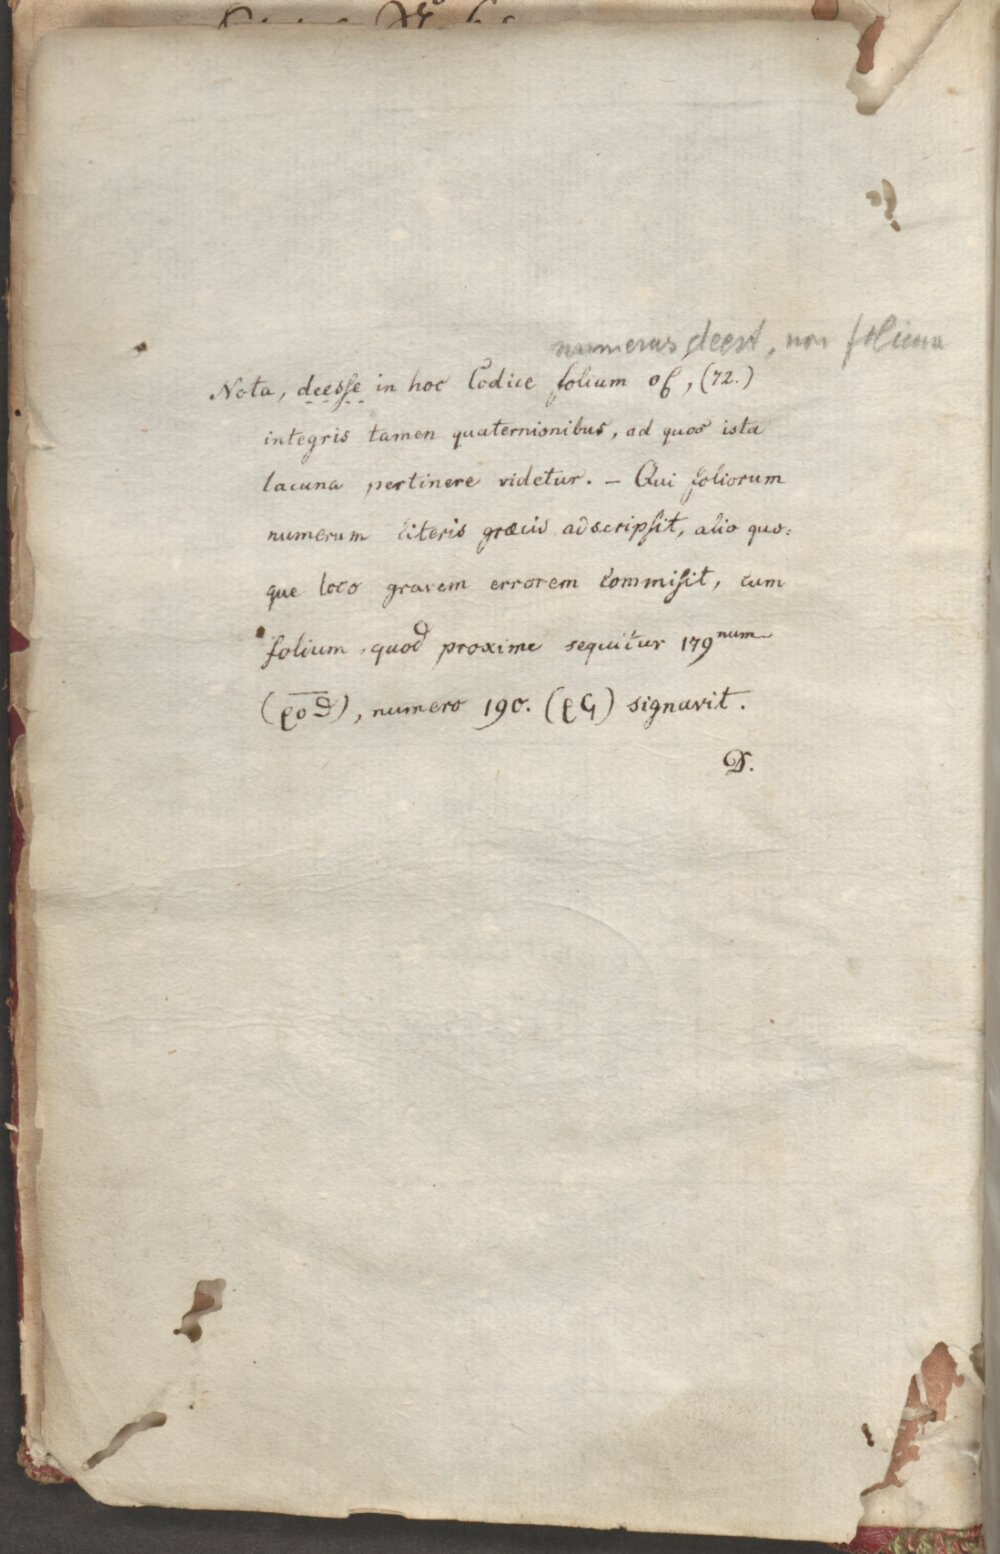 numerus deest, non folium
Nota, deesse in hoc Codice folium οβ, (72.)
integris tamen quaternionibus, ad quos ista
lacuna pertinere videtur. – Qui foliorum
numerum literis græcis adscripsit, alio quo:
que loco gravem errorem commisit, cum
folium, quod proxime sequitur 179num
(ροθ), numero 190. (ρϟ) signavit.
D.